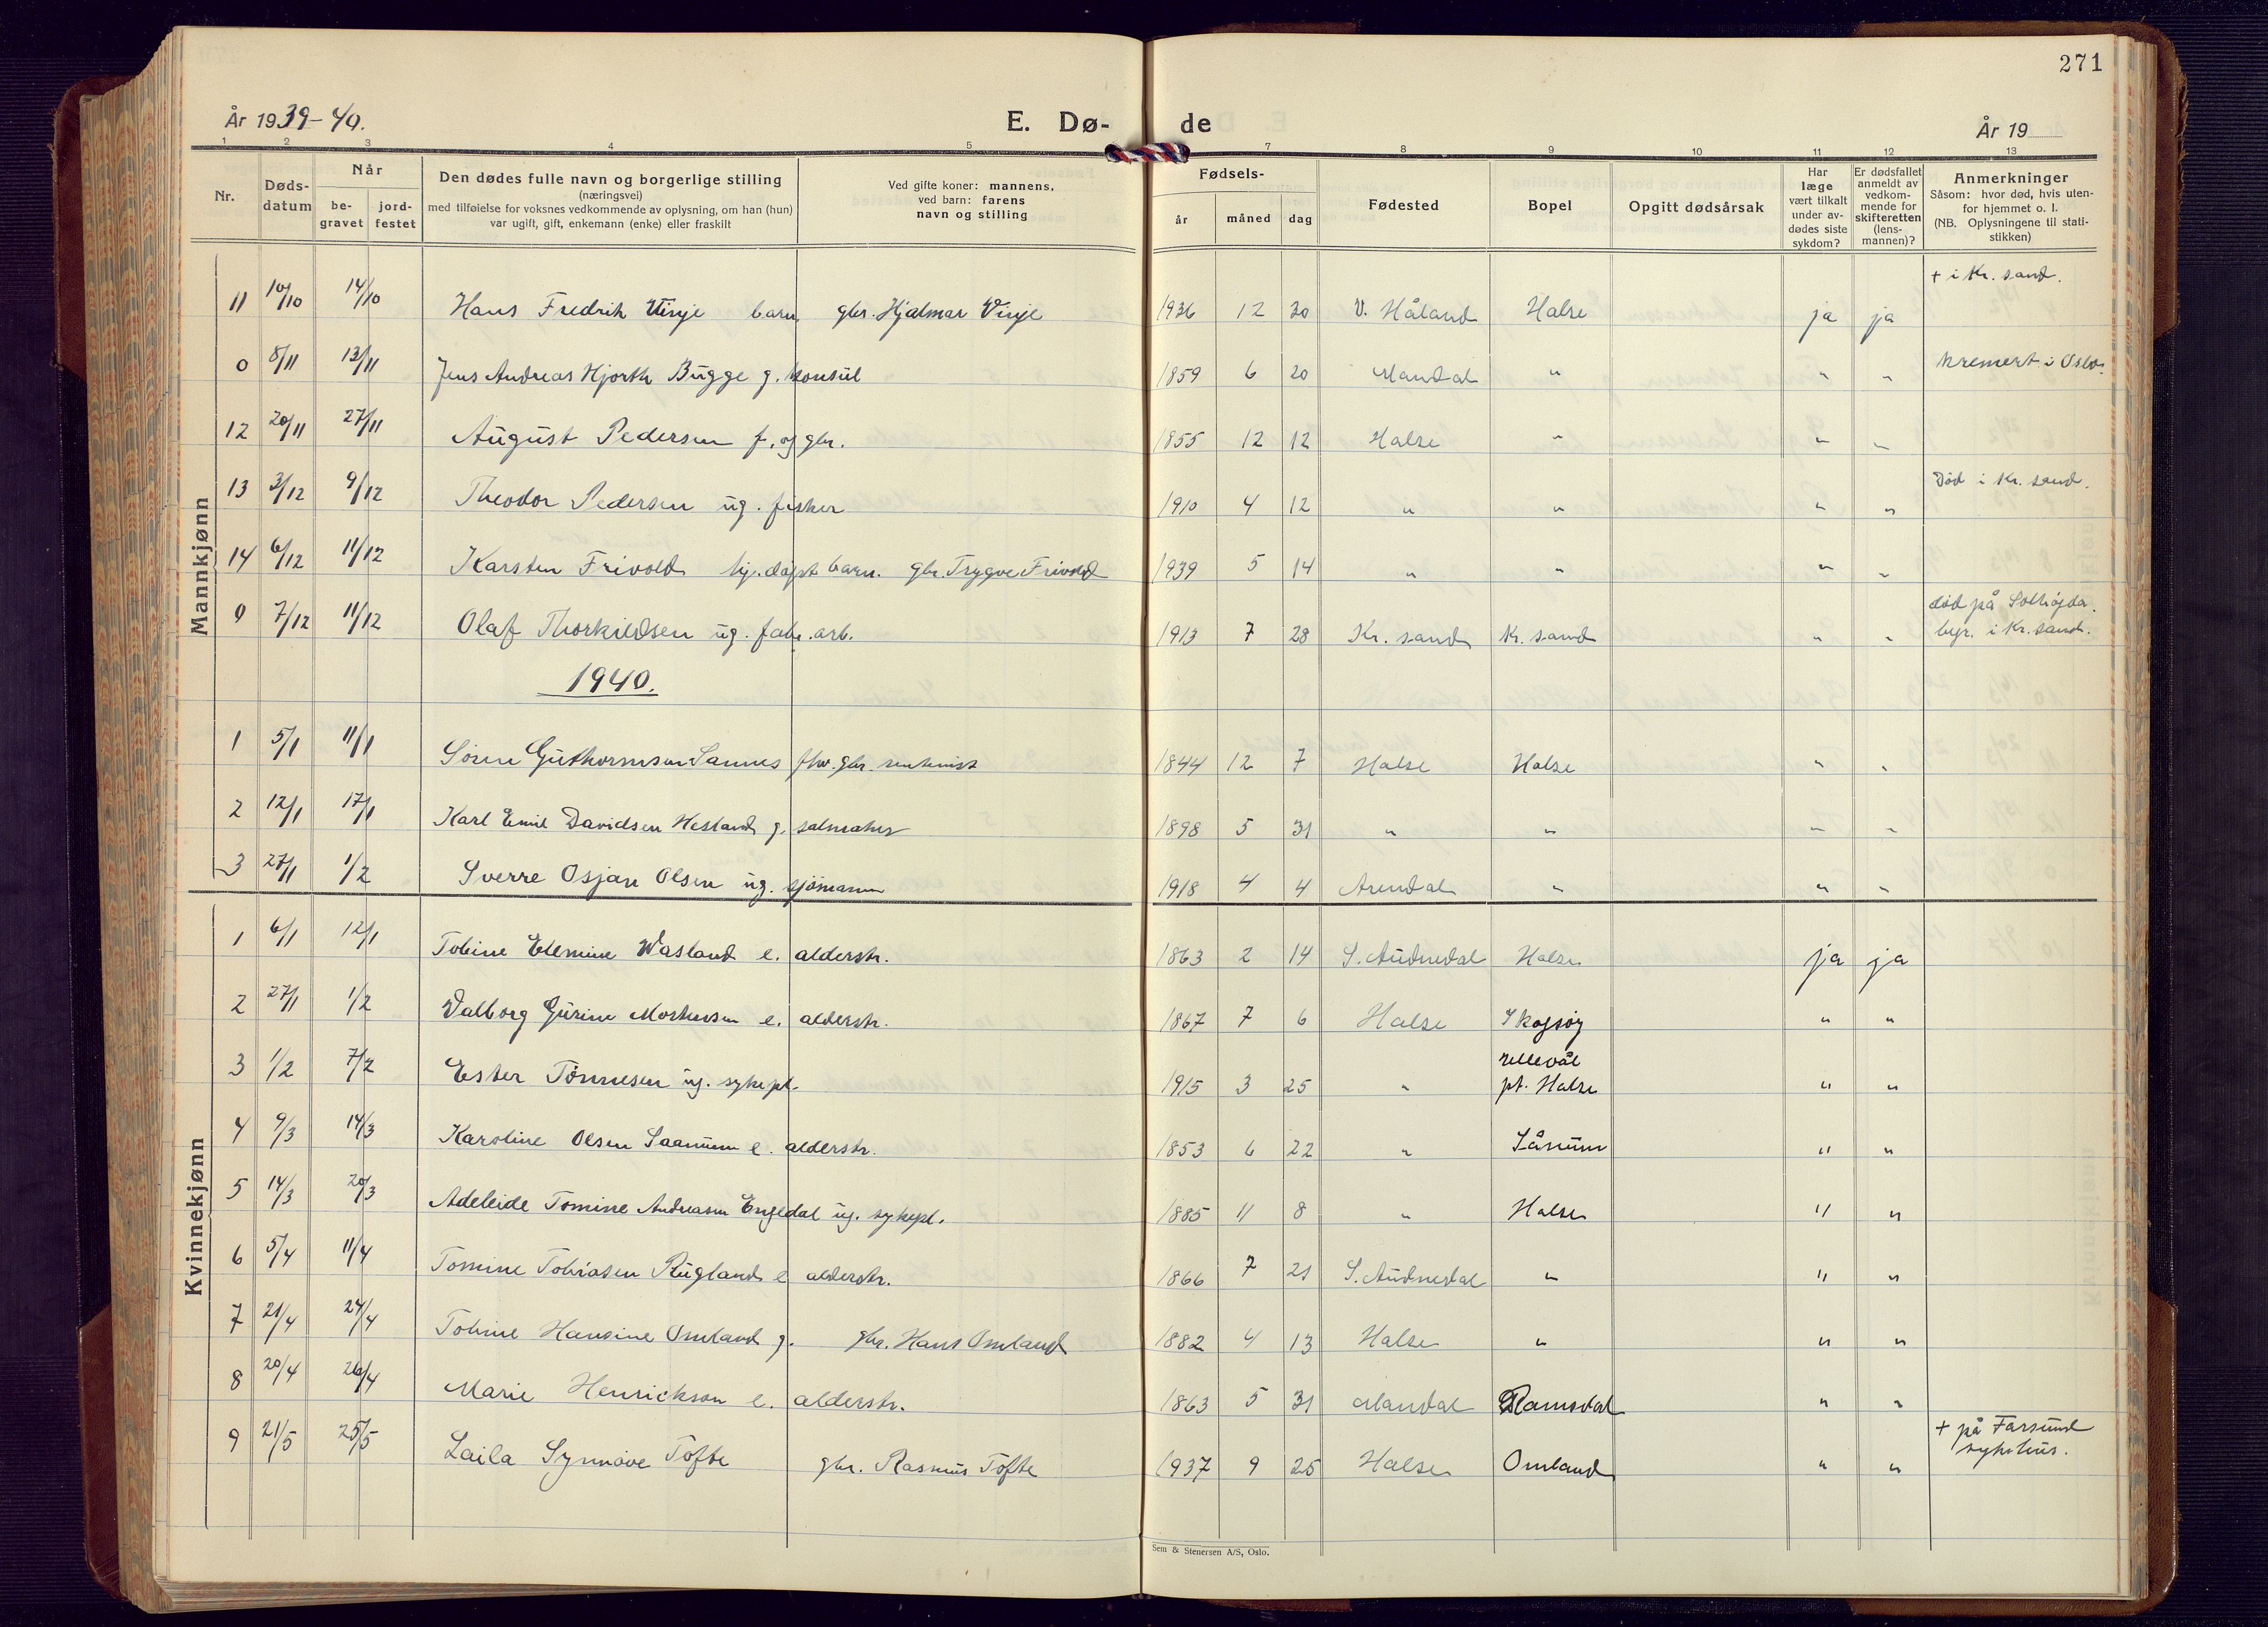 271
År 1939-40.
E. Dø-
de
År 19
1 2 3 4 5 7 8 9 10 11 12 13
Nr.
Døds-
datum
Når
be-
gravet
jord-
festet
Den dødes fulle navn og borgerlige stilling
(næringsvei)
med tilføielse for voksnes vedkommende av oplysning, om han (hun)
var ugift, gift, enkemann (enke) eller fraskilt
Ved gifte koner: mannens,
ved barn: farens
navn og stilling
Fødsels-
år
måned
dag
Fødested
Bopel
Opgitt dødsårsak
Har
læge
vært tilkalt
under av-
dødes siste
sykdom?
Er dødsfallet
anmeldt av
vedkom-
mende for
skifteretten
(lens-
mannen)?
Anmerkninger
Såsom: hvor død, hvis uten-
for hjemmet o. l.
(NB. Oplysningene til stati-
stikken)
Mannkjønn
11 10/10 14/10 Hans Fredrik Vinje barn gbr. Hjalmar Vinje 1936 12 30 V. Håland Halse ja ja + i Kr. sand.
0 8/11 13/11 Jens Andreas Hjorth Bugge g. konsul 1859 6 20 Mandal " " " Kremert i Oslo.
12 20/11 27/11 August Pedersen f. og gbr. 1855 12 12 Halse " " "
13 3/12 9/12 Theodor Pedersen ug. fisker 1910 4 12 " " " " Død i Kr. sand.
14 6/12 11/12 Karsten Frivold hj. døpt barn. gbr. Trygve Frivold 1939 5 14 " " " "
0 7/12 11/12 Olaf Thorkildsen ug. fabr. arb. 1913 7 28 Kr. sand Kr. sand " " død på Solhøgda.
begr. i Kr. sand.
1940.
1 5/1 11/1 Søren Guthormsen Sannes fhv. gbr. rentenist 1844 12 7 Halse Halse " "
2 12/1 17/1 Karl Emil Davidsen Hesland g. salmaker 1898 5 31 " " " "
3 27/1 1/2 Sverre Osjan Olsen ug. sjömann 1918 4 4 Arendal " " "
Kvinnekjønn
1 6/1 12/1 Tobine Elemine Wasland e. alderstr. 1863 2 14 S. Audnedal Halse ja ja
2 27/1 1/2 Valborg Gurine Mortensen e. alderstr. 1867 7 6 Halse Skogsøy " "
3 1/2 7/2 Ester Tønnesen ug. sykepl. 1915 3 25 " Ullevål
pt. Halse " "
4 9/3 14/3 Karoline Olsen Saanum e. alderstr. 1853 6 22 " Sånum " "
5 14/3 20/3 Adeleide Tomine Andreasen Engedal ug. sykepl. 1885 11 8 " Halse " "
6 5/4 11/4 Tomine Tobiasen Rugland e alderstr. 1866 7 21 S. Audnedal " " "
7 21/4 24/4 Tobine Hansine Omland g. gbr. Hans Omland 1882 4 13 Halse " " "
8 20/4 26/4 Marie Henrickson e. alderstr. 1863 5 31 Mandal Ramsdal " "
9 21/5 25/5 Laila Synnøve Tofte gbr. Rasmus Tofte 1937 9 25 Halse Omland " " + på Farsund
sykehus.
Sem & Stenersen A/S, Oslo.